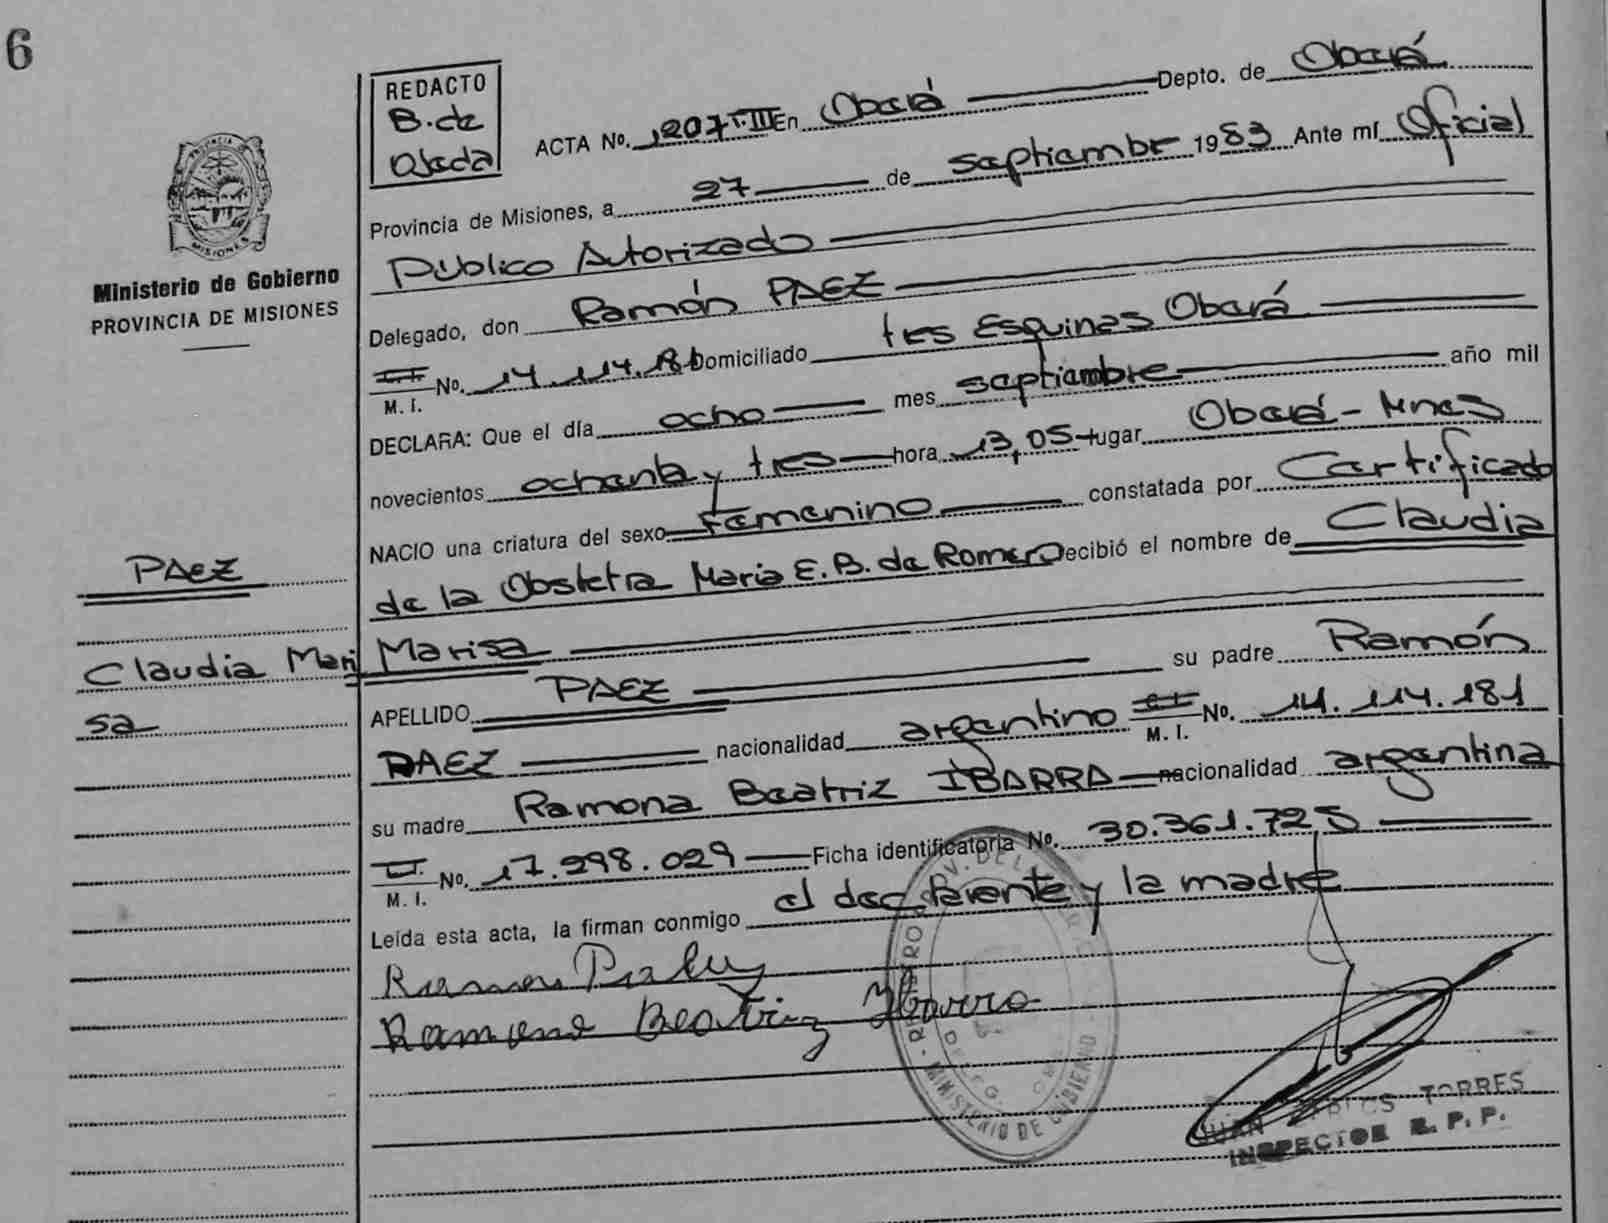 6
REDACTO
B. de
Ojeda
ACTA No. 1207 T. III En Oberá Depto. de Oberá
Provincia de Misiones, a 27 de septiembre 1983 Ante mí Oficial
Público Autorizado
Delegado, don Ramón PAEZ
No. 14.114.181 Domiciliado tres Esquinas Oberá
M. I.
DECLARA: Que el día ocho mes septiembre año mil
novecientos ochenta y tres hora 13,05 lugar Oberá - Mnes
NACIO una criatura del sexo femenino constatada por Certificado
de la Obstetra Maria E. B. de Romero recibió el nombre de Claudia
Marisa
APELLIDO PAEZ su padre Ramón
PAEZ nacionalidad argentino No. 14.114.181
M. I.
su madre Ramona Beatriz IBARRA nacionalidad argentina
No. 17.298.029 Ficha identificatoria No. 30.361.725
M. I.
Leída esta acta, la firman conmigo el declarente y la madre
Ramon
Ramona Beatriz Ibarra
MINISTERIO DE GOBIERNO
JUAN CARLOS TORRES
INSPECTOR R. P. P.
MISIONES
Ministerio de Gobierno
PROVINCIA DE MISIONES
PAEZ
Claudia Mari
sa